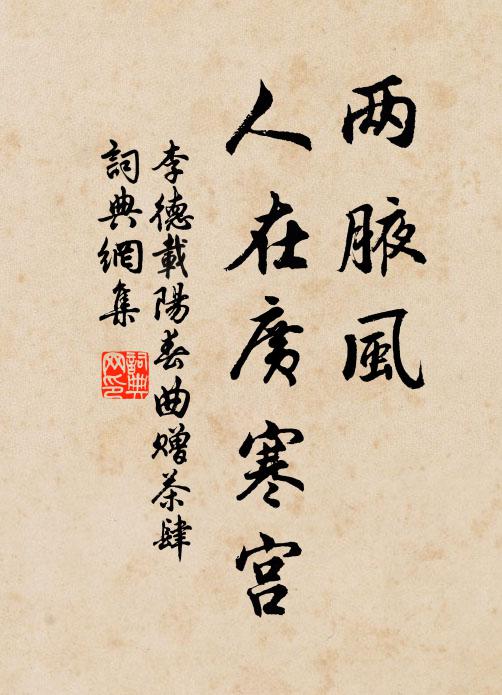 两腋風
人在廣寒宫
李德載陽春曲贈茶肆
詞典網集
詞典
网印